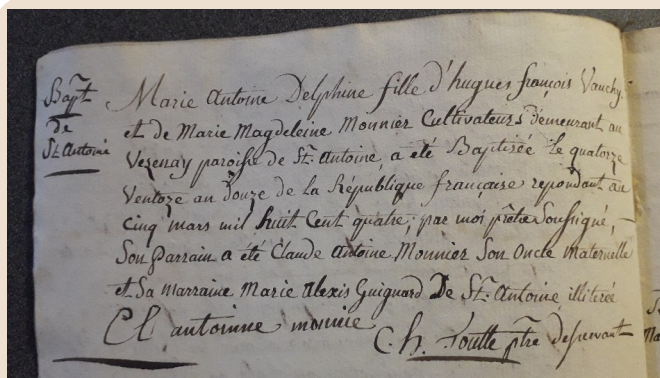 Bapt
de
St. Antoine
Marie Antoine Delphine fille d'hugues françois Vauchy
et de Marie Magdeleine Monnier Cultivateurs demeurant au
Vezenay paroisse de St. Antoine, a été Baptisée le quatorze
Ventoze an douze de la République française repondant au
cinq mars mil huit Cent quatre; par moi prêtre Soussigné,
Son Parrain a été Claude Antoine Monnier Son Oncle Maternelle
et Sa marraine Marie Alexis Guignard De St. Antoine illiterée
Cl antoinne monnie
C. h. ptre desservant